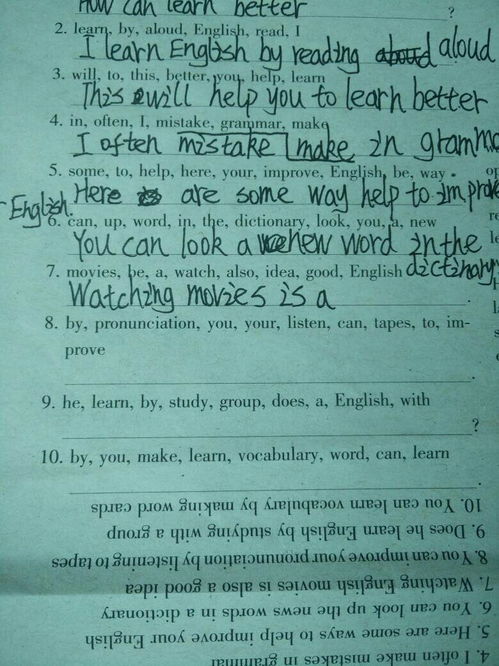 How can learn better ?
2. learn, by, aloud, English, read, I
I learn English by reading aloud aloud
3. will, to, this, better, you, help, learn
This will help you to learn better
4. in, often, I, mistake, grammar, make
I often mistake make in gramma
5. some, to, help, here, your, improve, English, be, way
Here is are some way help to improve
English.
6. can, up, word, in, the, dictionary, look, you, a, new
You can look a new word in the
dictinary
7. movies, be, a, watch, also, idea, good, English
Watching movies is a .
8. by, pronunciation, you, your, listen, can, tapes, to, im-
prove
.
9. he, learn, by, study, group, does, a, English, with
?
10. by, you, make, learn, vocabulary, word, can, learn
.
10. You can learn vocabulary by making word cards
9. Does he learn English by studying with a group
8. You can improve your pronunciation by listening to tapes
7. Watching English movies is also a good idea
6. You can look up the news words in a dictionary
5. Here are some ways to help improve your English
4. I often make mistakes in grammar